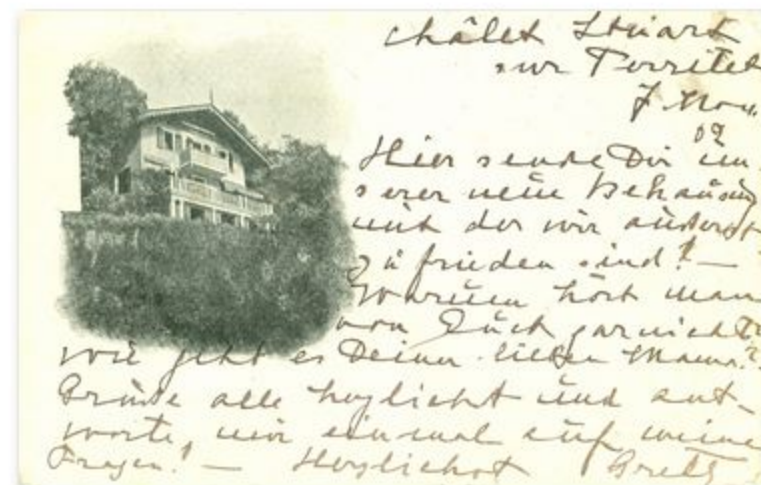 châlet Stuart
sur Territet
7 Nov.
09
Hier sende Dir un-
serer neue Behausung
mit der wir äuserst
zufrieden sind! —
Warum hört man
von Euch gar nicht?
Wie geht es Deiner lieben Mama?
Grüsse alle herzlichst und ant-
worte mir einmal auf meine
Fragen! — Herzlichst